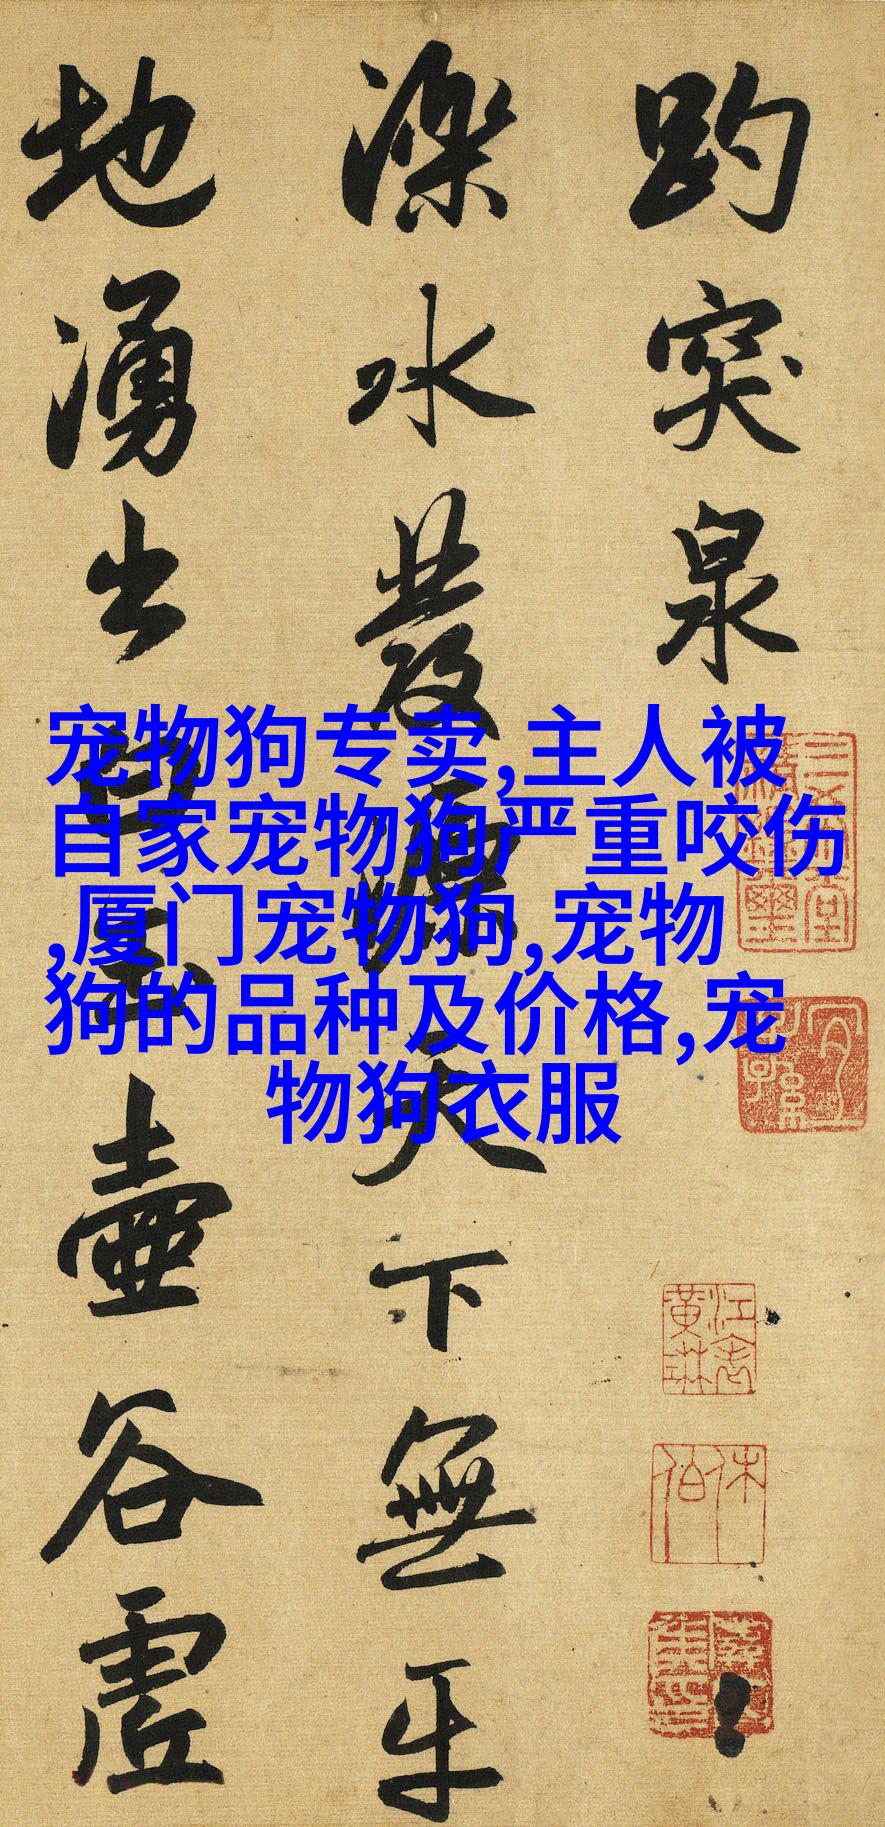 趵突泉
濼水發源天下無
平地湧出白玉壺
谷虛
宠物狗专卖,主人被
自家宠物狗严重咬伤
,厦门宠物狗,宠物
狗的品种及价格,宠
物狗衣服